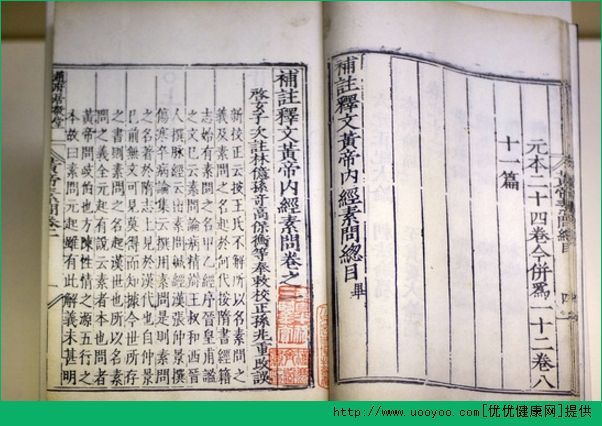 元本二十四卷今併爲一十二卷八
十一篇
補註釋文黃帝內經素問總目畢
補註釋文黃帝內經素問卷之
啓玄子次註林億孫奇高保衡等奉敕校正孫兆重改誤
新校正云按王氏不解所以名素問之
義及素問之名起於何代按隋書經籍
志始有素問之名甲乙經序晉皇甫謐
之文已云素問論病精辯王叔和西晉
人撰脉經云出素問鍼經漢張仲景撰
傷寒卒病論集云撰用素問是則素問
之名著於隋志上見於漢代也自仲景
已前無文可見莫得而知據今世所存
之書則素問之名起漢世也所以名素
問之義全元起有說云素者本也問者
黃帝問岐伯也方陳性情之源五行之
本故曰素問元起雖有此解義未甚明
http://www.uooyoo.com[优优健康网]提供